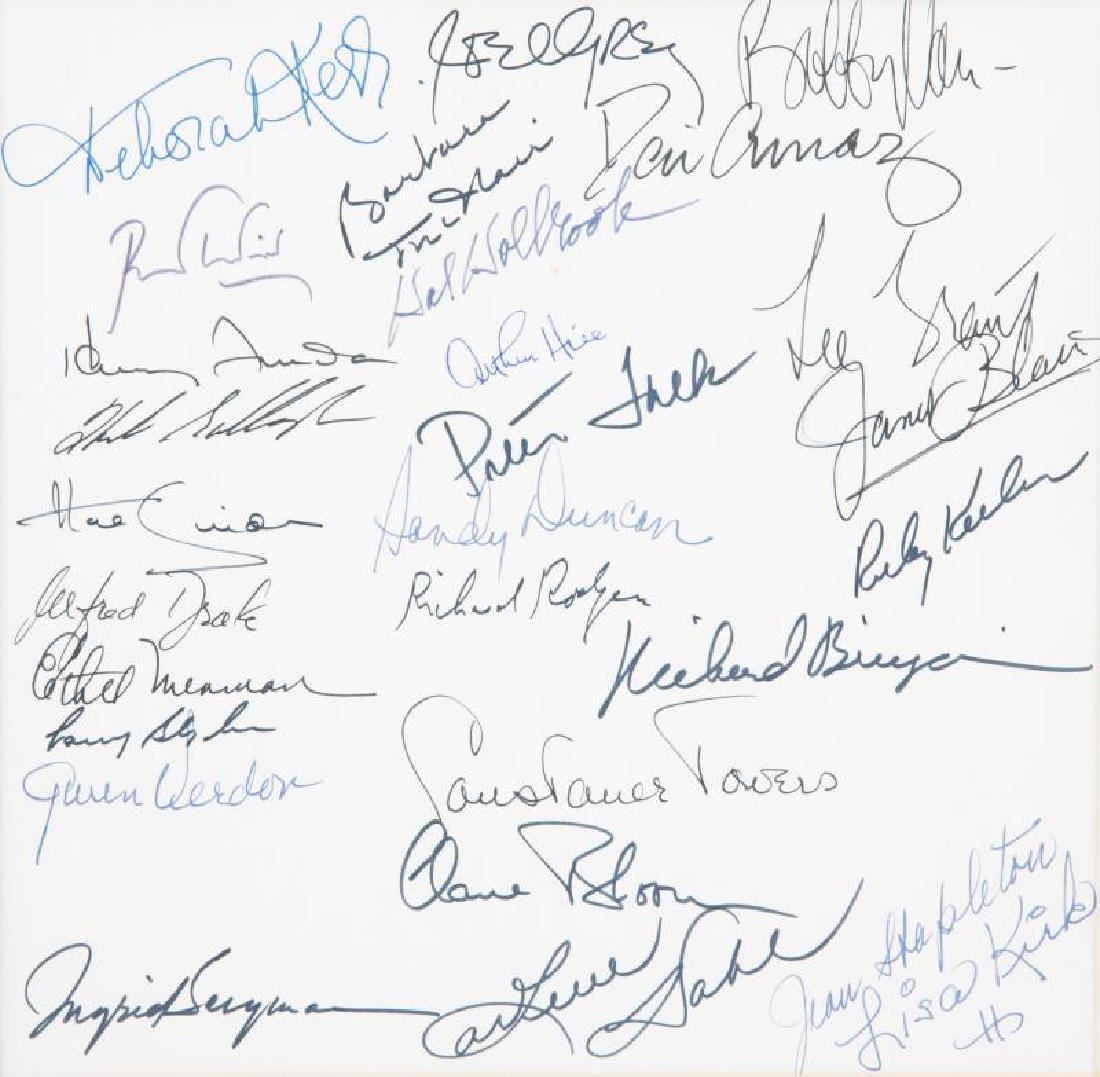 Deborah Kerr
Joel Grey
Bobby Van
Barbara
McNair
Desi Arnaz
Hal Holbrook
Henry Fonda
Arthur Hill
Lee Grant
Janet Blair
Peter Falk
Sandy Duncan
Ruby Keeler
Alfred Drake
Richard Rodgers
Ethel Merman
Richard
Gwen Verdon
Constance Towers
Claire Bloom
Ingrid Bergman
Arlene Dahl
Jean Stapleton
Lisa Kirk